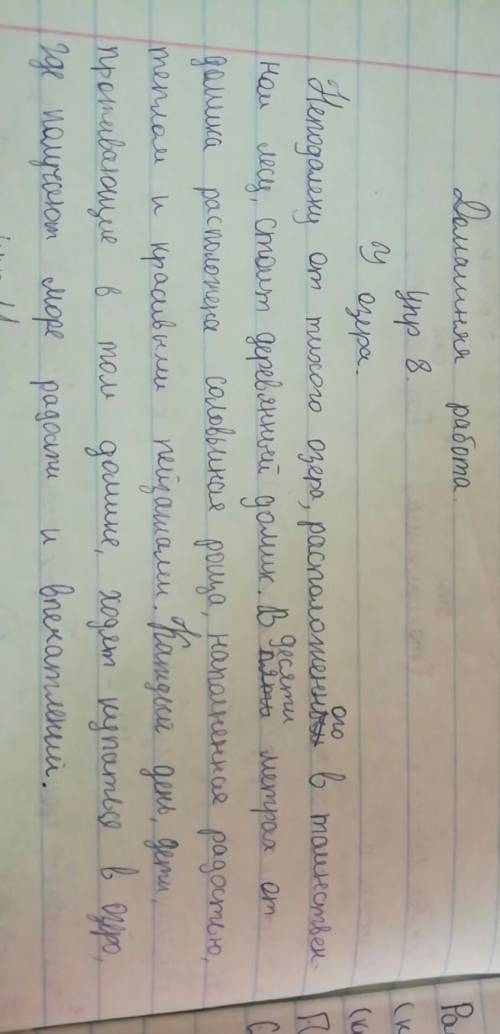 Домашняя работа.
упр 8.
У озера.
Неподалеку от тихого озера, расположенного в таинствен-
ном лесу, стоит деревянный домик. В десяти метрах от
домика расположена соловьиная роща, наполненная радостью,
теплом и красивыми пейзажами. Каждый день, дети,
проживающие в том домике, ходят купаться в озеро,
где получают море радости и впечатлений.